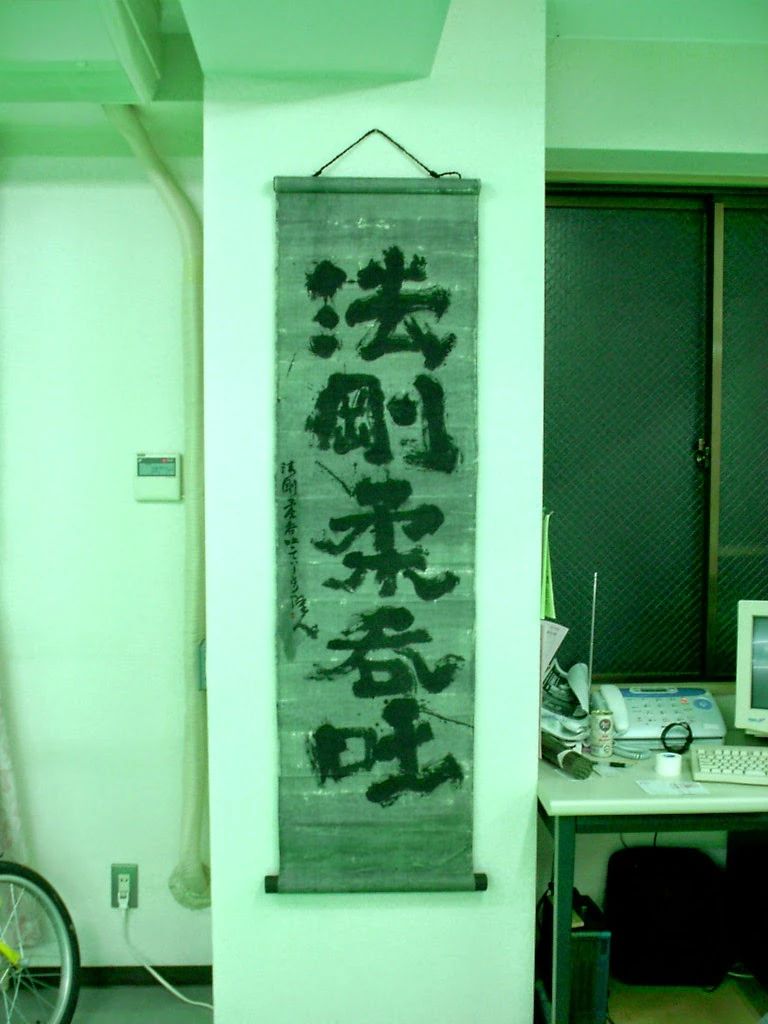 法剛柔呑吐
法剛柔呑吐